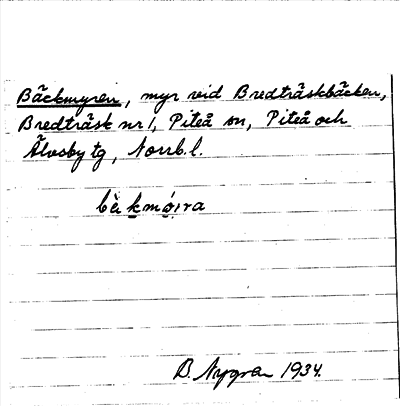 Bäckmyren, myr vid Bredträskbäcken,
Bredträsk nr 1, Piteå sn, Piteå och
Älvsby tg, Norrb. l.
B. Nygren 1934.